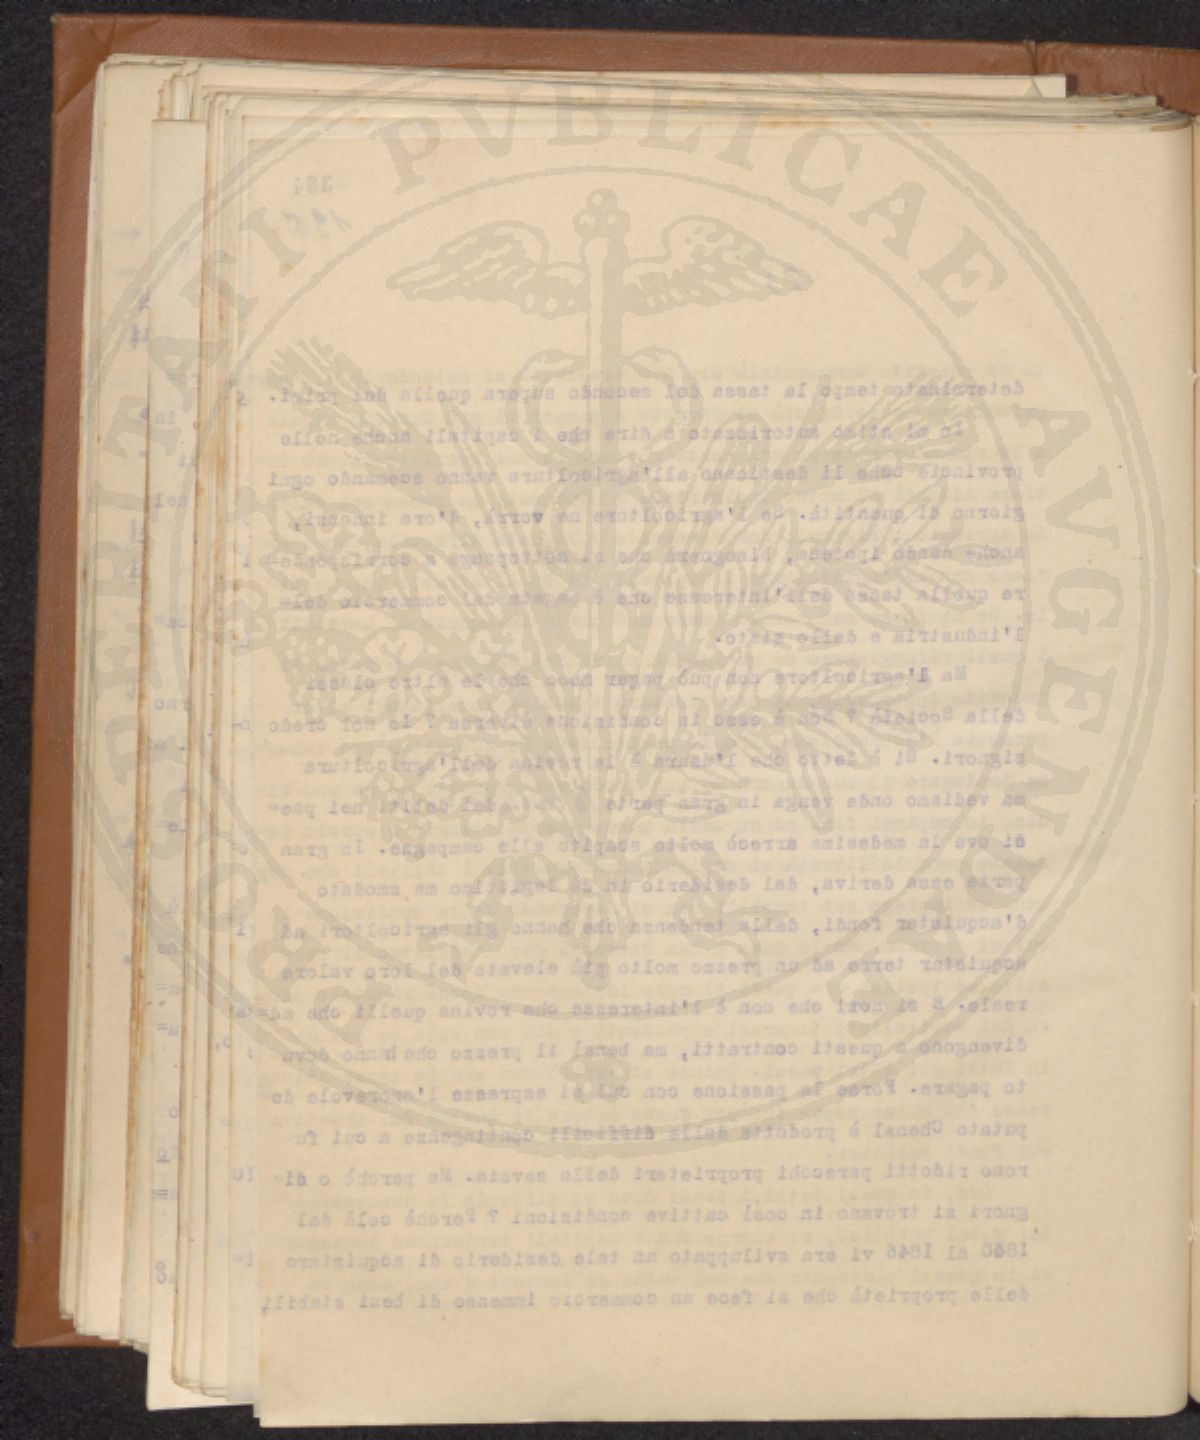 384
195
determinato tempo la tassa del secondo supera quella dei primi.
Io mi stimo autorizzato a dire che i capitali anche nelle
provincie che li destinano all'agricoltura vanno scemando ogni
giorno di quantità. Se l'agricoltore ne vorrà, d'ora innanzi,
anche dando ipoteca, bisognerà che si sottoponga a corrisponde=
re quella tassa dell'interesse che è pagata dal commercio del=
l'industria e dello stato.
Ma l'agricoltore non può pagar meno che le altre classi
della Società ? Non è esso in condizione diversa ? Io nol credo
signori. Si è detto che l'usura è la rovina dell'agricoltura
ma vediamo onde venga in gran parte dei debiti nei pae=
si ove la medesima arrecò molto scapito alle campagne. In gran
parte essa deriva, dal desiderio in sè legittimo ma smodato
d'acquistar fondi, dalla tendenza che hanno gli agricoltori ad
acquistar terre ad un prezzo molto più elevato del loro valore
reale. E si noti che non è l'interesse che rovina quelli che ad=
divengono a questi contratti, ma bensì il prezzo che hanno dovu=
to pagare. Forse la passione con cui si espresse l'onorevole de=
putato Chenal è prodotta dalle difficili contingenze a cui fu=
rono ridotti parecchi proprietari della savoia. Ma perchè o si=
gnori si trovano in così cattive condizioni ? Perchè colà dal
1840 al 1846 vi era sviluppato un tale desiderio di acquistare
delle proprietà che si fece un commercio immenso di beni stabili,